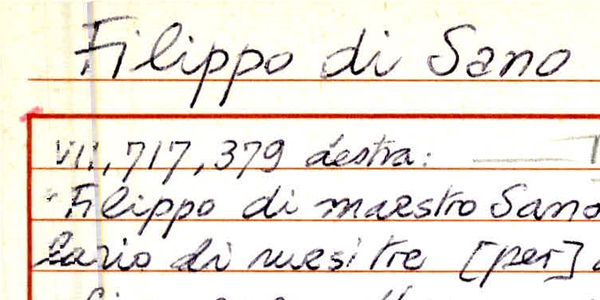 Filippo di Sano
VII, 717, 379 destra:
Filippo di maestro Sano
di mesi tre [per]